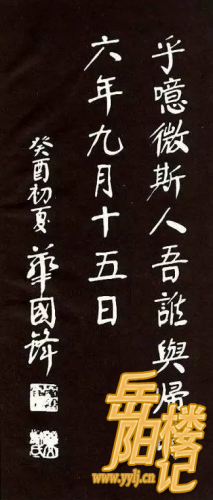 乎噫微斯人吾誰與歸
六年九月十五日
癸酉初夏 華國鋒
岳阳楼记
www.yylj.cn